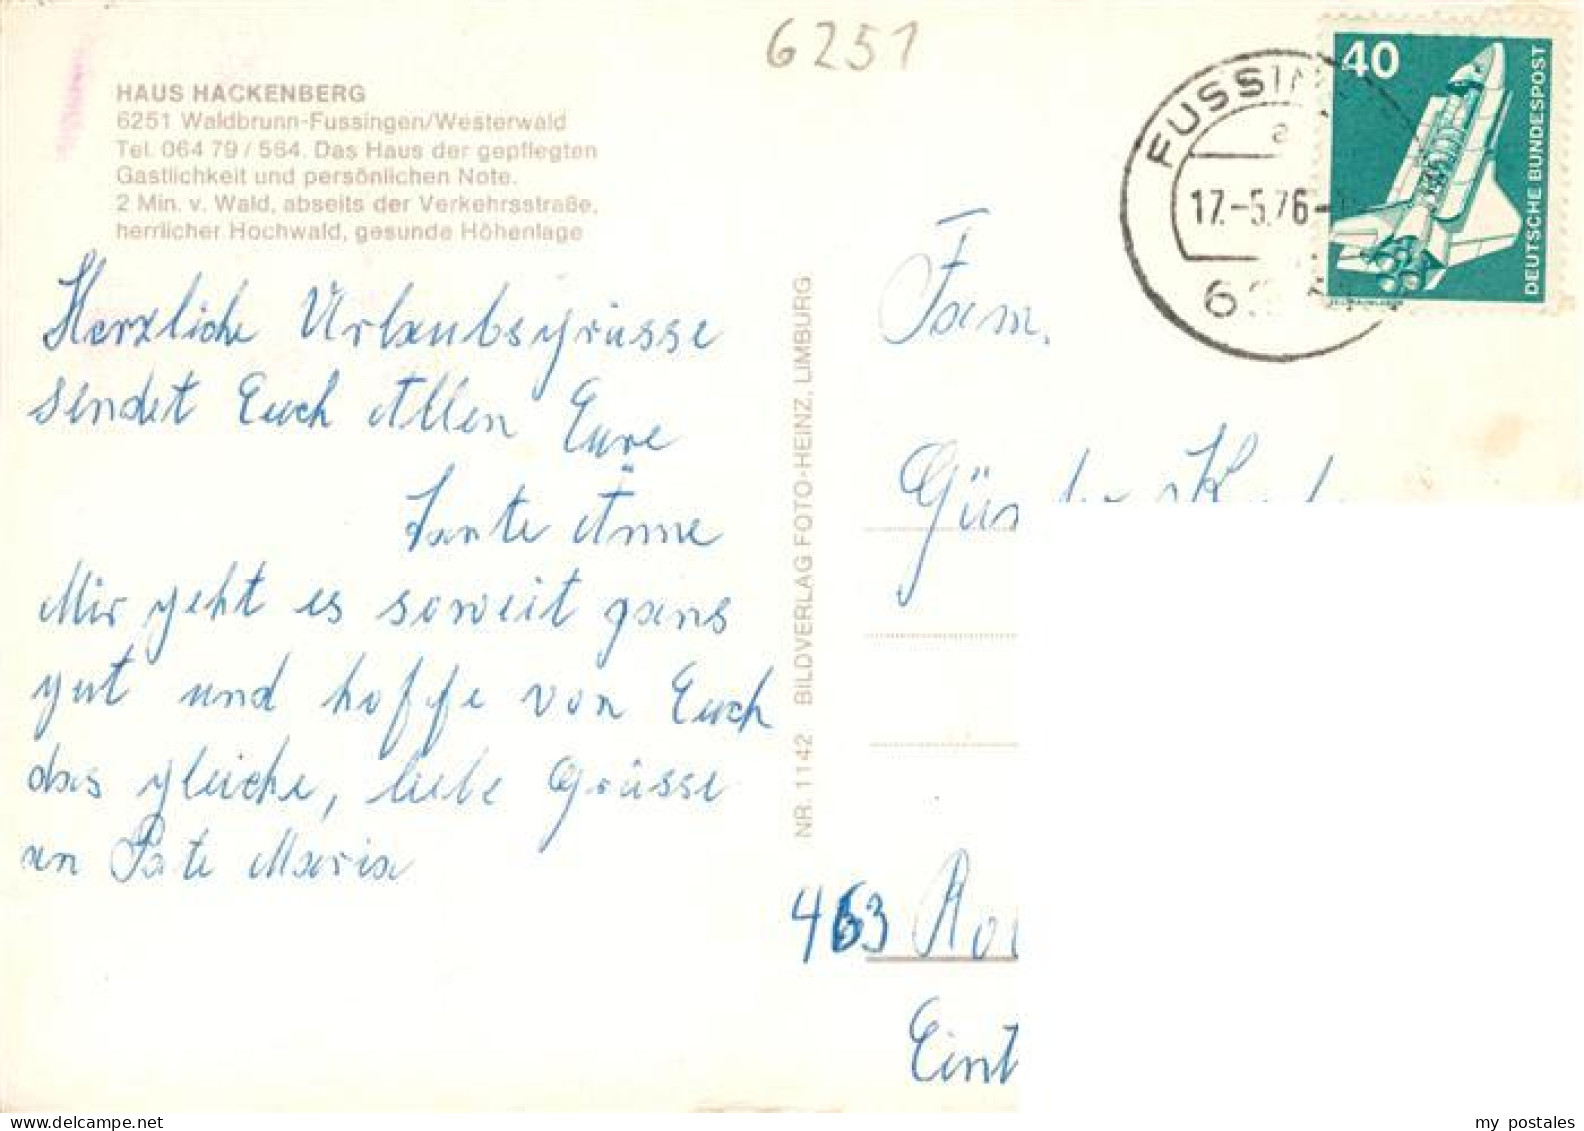 6251
HAUS HACKENBERG
6251 Waldbrunn-Fussingen/Westerwald
Tel. 064 79 / 564. Das Haus der gepflegten
Gastlichkeit und persönlichen Note.
2 Min. v. Wald, abseits der Verkehrsstraße,
herrlicher Hochwald, gesunde Höhenlage
Herzliche Urlaubsgrüsse
sendet Euch Allen Eure
Tante Änne
Mir geht es soweit gans
gut und hoffe von Euch
das gleiche, liebe Grüsse
an Pate Maria
NR. 1142 BILDVERLAG FOTO-HEINZ, LIMBURG
FUSSIN
a
17.-5.76-
40
DEUTSCHE BUNDESPOST
Fam.
Gün
463
Eint
my postales